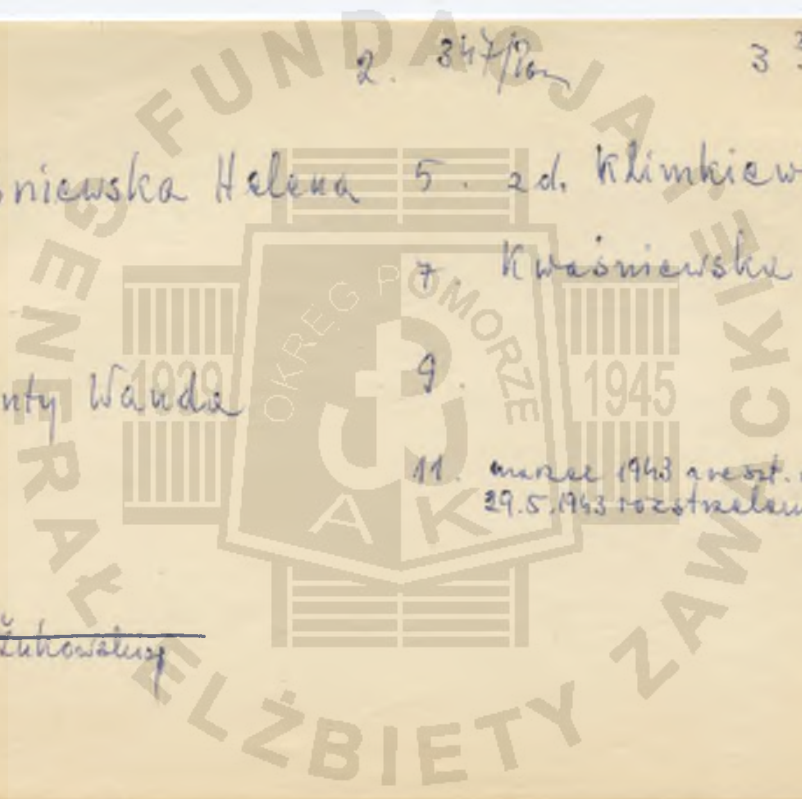 2. 347/Pom 3 3
śniewska Helena 5. zd. Klimkiew
7 Kwaśniewska
nty Wanda 9.
11. marzec 1943 areszt.
29.5.1943 rozstrzelan
Żukowskiej
FUNDACJA GENERAŁ ELŻBIETY ZAWACKIEJ
OKRĘG POMORZE
1939 1945
AK